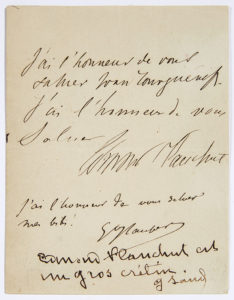 J'ai l'honneur de vous
saluer Ivan Tourguéneff
J'ai l'honneur de vous
Saluer
Edmond Plauchut
j'ai l'honneur de vous saluer
mes bibi!
GFlaubert
Edmond Plauchut est
un gros crétin.
G Sand